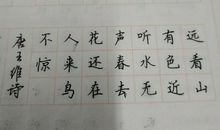 远看山
有色近
听水无
声春去
花还在
人来鸟
不惊
唐王维诗